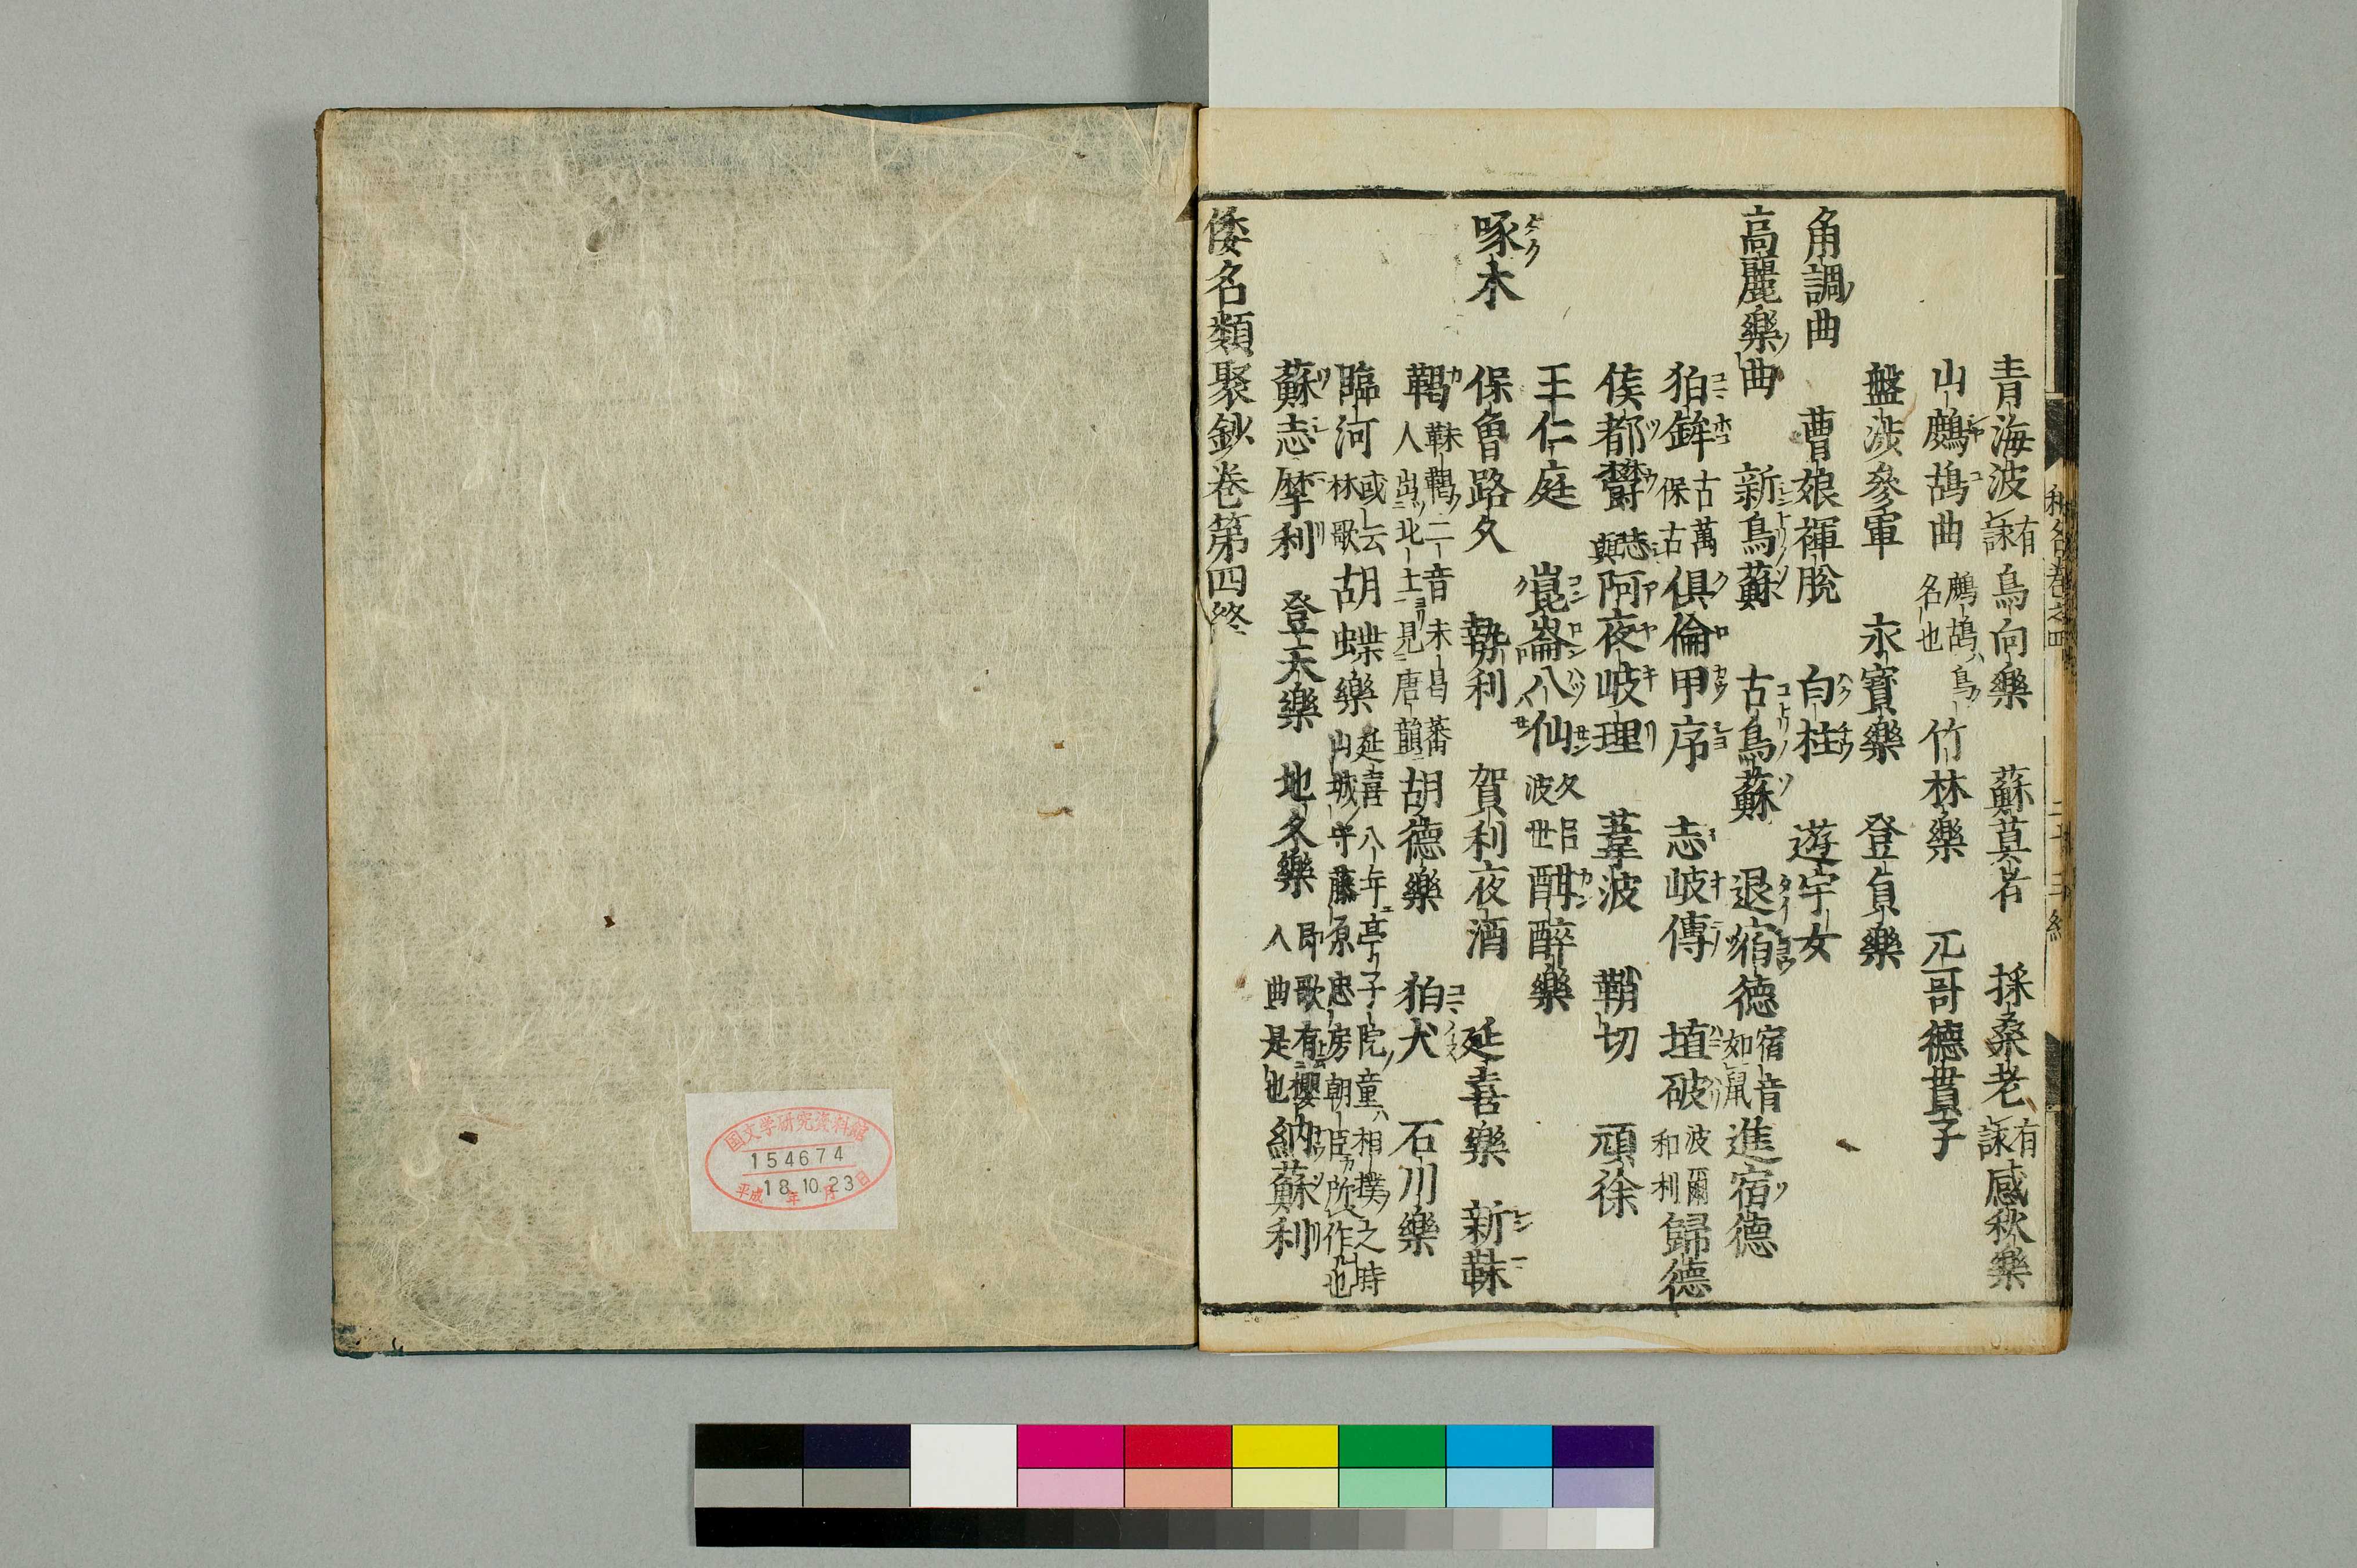 青海波有詠鳥向樂 蘇莫者 採桑老有詠感秋樂
山鷓鴣曲鷓鴣ハ鳥ノ名也 竹林樂 兀哥德貫子
盤渉參軍 永寶樂 登貞樂
角調曲 曹娘褌脱 白柱 遊宇女
高麗樂曲 新鳥蘇 古鳥蘇 退宿德宿音如鼠進宿德
狛鉾古萬保古倶倫甲序 志岐傳 埴破波爾和利歸德
俟都欝志與阿夜岐理 葦波 鞘切 頑徐
王仁庭 崑崙八仙久呂波世酣醉樂
啄木 保魯路久 㔟利 賀利夜酒 延喜樂 新靺
鞨靺鞨ノ二音末曷蕃人出北土見唐韻胡德樂 狛犬 石川樂
臨河或云林歌胡蝶樂延喜八年亭子院童相撲之時山城守藤原忠房朝臣所作也
蘇志摩利 登天樂 地久樂即歌有櫻人曲是也納蘇利
倭名類聚鈔卷第四終
和名卷之四
二十三終
国文学研究資料館
154674
平成18年10月23日